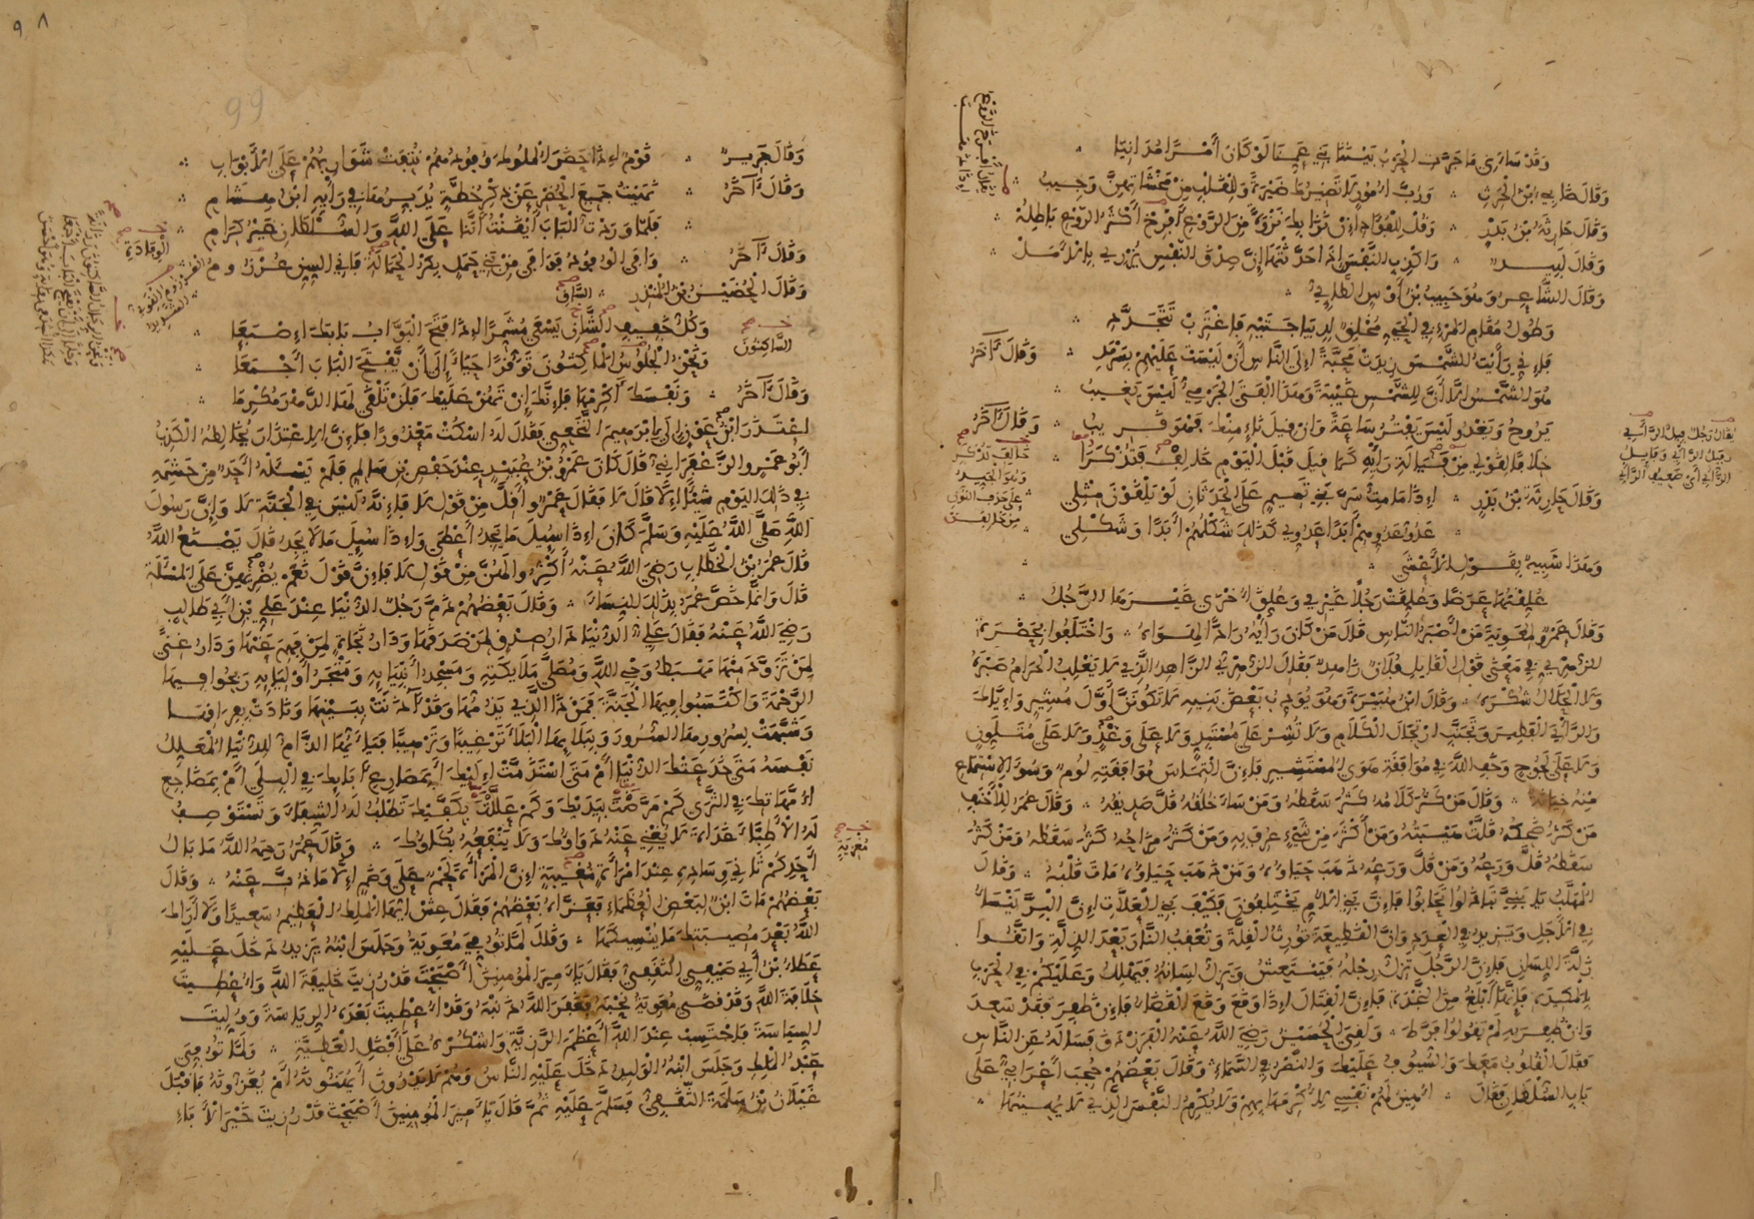 وقال ضابئ ابن الحرث ۞ ورب أمور لا تضيرك ضيرة وللقلب من مخشاتهن وجيب
وقال حارثة بن بدر ۞ وقل للفؤاد إن نزا بك نزوة من الروع أفرخ أكثر الروع باطله
وقال لبيد ۞ واكذب النفس إذا حدثتها إن صدق النفس يزري بالأمل
وقال الشاعر وهو حبيب بن أوس الطائي
وطول مقام المرء في الحي مخلق لديباجتيه فاغترب تتجدد
فإني رأيت الشمس زيدت محبة إلى الناس أن ليست عليهم بسرمد ۞ وقال آخر
هو الشمس إلا أن للشمس غيبة وهذا الفتى الجرمي ليس يغيب
يروح ويغدو ليس يفتر ساعة وإن قيل ناء منك فهو قريب ۞ وقال آخر
خلافا لقولي من فيالة رأيه كما قيل قبل اليوم خالف فتذكرا
وقال حارثة بن بدر ۞ إذا ما مت سر بني تميم على الحدثان لو يلقون مثلي
عدو عدوهم أبدا عدوي كذلك شكلهم أبدا وشكلي
وهذا شبيه بقول الأعشى
علقتها عرضا وعلقت رجلا غيري وعلق أخرى غيرها الرجل
وقال عمرو لمعوية من أصبر الناس قال من كان رأيه رادا لهواه ۞ واختلفوا بحضرة
الزهري في معنى قول القايل فلان زاهد فقال الزهري الزاهد الذي لا يغلب الحرام صبره
ولا الحلال شكره ۞ وقال ابن هبيرة وهو يؤدب بعض بنيه لا تكونن أول مشير وإياك
والرأي الفطير وتجنب ارتجال الكلام ولا تشر على مستبد ولا على وغد ولا على متلون
ولا على لجوج وخف الله في موافقة هوى المستشير فإن التماس موافقته لوم وسوء الاستماع
منه خيانة ۞ وقال من كثر كلامه كثر سقطه ومن ساء خلقه قل صديقه ۞ وقال عمر للأحنف
من كثر ضحكه قلت هيبته ومن أكثر من شيء عرف به ومن كثر مزاحه كثر سقطه ومن كثر
سقطه قل ورعه ومن قل ورعه ذهب حياؤه ومن ذهب حياؤه مات قلبه ۞ وقال
المهلب يا بني تباذلوا تحابوا فإن بني الأم يختلفون فكيف بني العلات إن البر ينسأ
في الأجل ويزيد في العدد وإن القطيعة تورث القلة وتعقب النار بعد الذلة واتقوا
زلة اللسان فإن الرجل تزل رجله فينتعش ويزل لسانه فيهلك وعليكم في الحرب
بالمكيدة فإنها أبلغ من النجدة فإن القتال إذا وقع وقع القضاء فإن ظفر فقد سعد
وإن ظفر به لم يقولوا فرط ۞ ولقي الحسين رضي الله عنه الفرزدق فسأله عن الناس
فقال القلوب معك والسيوف عليك والنصر في السماء ۞ وقال بعضهم حجب أعرابي على
باب السلطان فقال ۞ أهين لهم نفسي لأكرمها بهم ولا يكرم النفس الذي لا يهينها
خالف تذكر
يقال رجل فيل الرأي
الرأي أي ضعيف الرأي
٩٨
99
وقال جرير ۞ قوم إذا حضر الملوك وفودهم نتفت شواربهم على الأبواب
وقال آخر
فلما وردت الباب أيقنت أننا على الله والسلطان غير كرام
وقال آخر ۞ وافي الوفود فوافى من بني جمل بكر الجمالة فاني السن عزدوم
وقال الحضين بن المنذر
وكل خفيف الشأن يسعى مشمرا إذا فتح البواب بابك إصبعا
ونحن الجلوس الماكثون توقرا حياء إلى أن يفتح الباب أجمعا
وقال آخر ۞ ونفسك أكرمها فإنك إن تهن عليك فلن تلقى لها الدهر مكرما
اعتذر ابن عون إلى إبرهيم النخعي فقال له اسكت معذورا فإن الاعتذار يخالطه الكذب
أبو عمرو الزعفراني قال كان عمرو بن عبيد عند حفص بن سالم فلم يسئله أحد من حشمه
في ذلك اليوم شيئا إلا قال لا فقال عمرو أقل من قول لا فإنه ليس في الجنة لا وإن رسول
الله صلى الله عليه وسلم كان إذا سئل ما يجد أعطى وإذا سئل ما لا يجد قال يصنع الله
قال عمر بن الخطاب رضي الله عنه أكثروا لهن من قول لا فإن قول نعم يضريهن على المسئلة
قال وإنما خص عمر بذلك النساء ۞ وقال بعضهم ذم رجل الدنيا عند علي بن أبي طالب
رضي الله عنه فقال علي الدنيا دار صدق لمن صدقها ودار نجاة لمن فهم عنها ودار غنى
لمن تزود منها مهبط وحي الله ومصلى ملايكته ومسجد أنبيايه ومتجر أوليايه ربحوا فيها
الرحمة واكتسبوا فيها الجنة فمن ذا الذي يذمها وقد آذنت ببينها ونادت بفراقها
وشبهت بسرورها السرور وببلايها البلاء ترغيبا وترهيبا فيا أيها الذام للدنيا المعلل
نفسه متى خدعتك الدنيا أم متى استذمت إليك أبمصارع آبايك في البلى أم بمضاجع
أمهاتك في الثرى كم مرضت بيديك وكم عللت بكفيك تطلب له الشفاء وتستوصف
له الأطباء غداة لا يغني عنه دواؤك ولا ينفعه بكاؤك ۞ وقال عمر رحمه الله ما بال
أحدكم ثاني وساده عند امرأة مغيبة إن المرأة لحم على وضم إلا ما ذب عنه ۞ وقال
بعضهم مات ابن لبعض العظماء فعزاه بعضهم فقال عش أيها الملك العظيم سعيدا ولا أراك
الله بعد مصيبتك ما ينسيكها ۞ وقال لما توفي معوية وجلس ابنه يزيد دخل عليه
عطاء بن أبي صيفي الثقفي فقال يا أمير المؤمنين أصبحت قد رزيت خليفة الله وأعطيت
خلافة الله وقد قضى معوية نحبه فغفر الله ذنبه وقد أعطيت بعده الرياسة ووليت
السياسة فاحتسب عند الله أعظم الرزية واشكره على أفضل العطية ۞ ولما توفي
عبد الملك وجلس ابنه الوليد دخل عليه الناس وهم لا يدرون أيهنئونه أم يعزونه فأقبل
غيلان بن سلمة الثقفي فسلم عليه ثم قال يا أمير المؤمنين أصبحت قد رزيت خير الآباء
الساكنون
مغزية